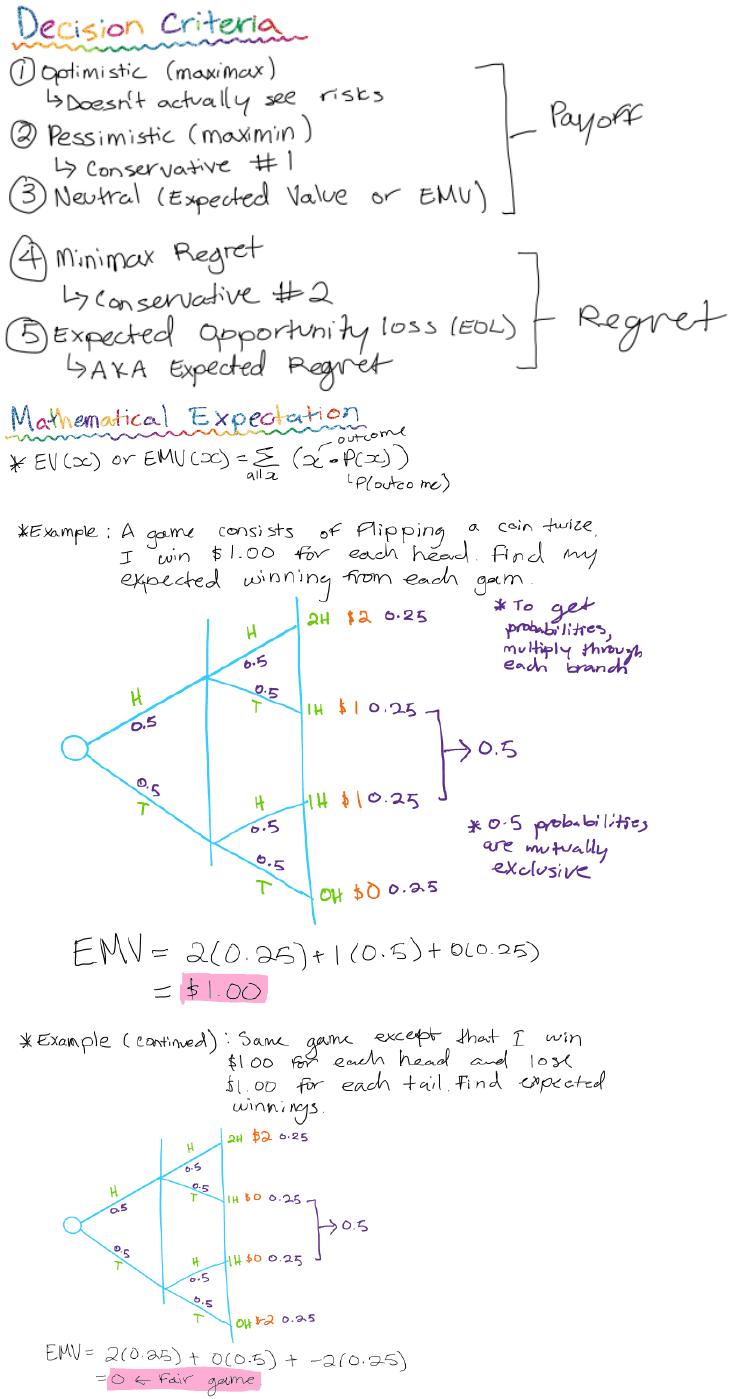 Decision Criteria
① Optimistic (maximax)
↳ Doesn't actually see risks
② Pessimistic (maximin)
↳ Conservative #1
③ Neutral (Expected Value or EMV)
Payoff
④ Minimax Regret
↳ Conservative #2
⑤ Expected Opportunity loss (EOL)
↳ AKA Expected Regret
Regret
Mathematical Expectation
outcome
* EV(x) or EMV(x) = Σ (x · P(x))
all x
P(outcome)
*Example: A game consists of flipping a coin twize.
I win $1.00 for each head. Find my
expected winning from each gam.
* To get
probabilities,
multiply through
each branch
H
0.5
2H $2 0.25
0.5
T
1H $1 0.25
H
0.5
→ 0.5
0.5
T
H
0.5
1H $1 0.25
0.5
T
0H $0 0.25
* 0.5 probabilities
are mutually
exclusive
EMV = 2(0.25) + 1(0.5) + 0(0.25)
= $1.00
*Example (continued): Same game except that I win
$1.00 for each head and lose
$1.00 for each tail. Find expected
winnings.
H
0.5
2H $2 0.25
0.5
T
1H $0 0.25
H
0.5
→ 0.5
0.5
T
H
0.5
1H $0 0.25
0.5
T
0H $-2 0.25
EMV = 2(0.25) + 0(0.5) + -2(0.25)
= 0 ← Fair game